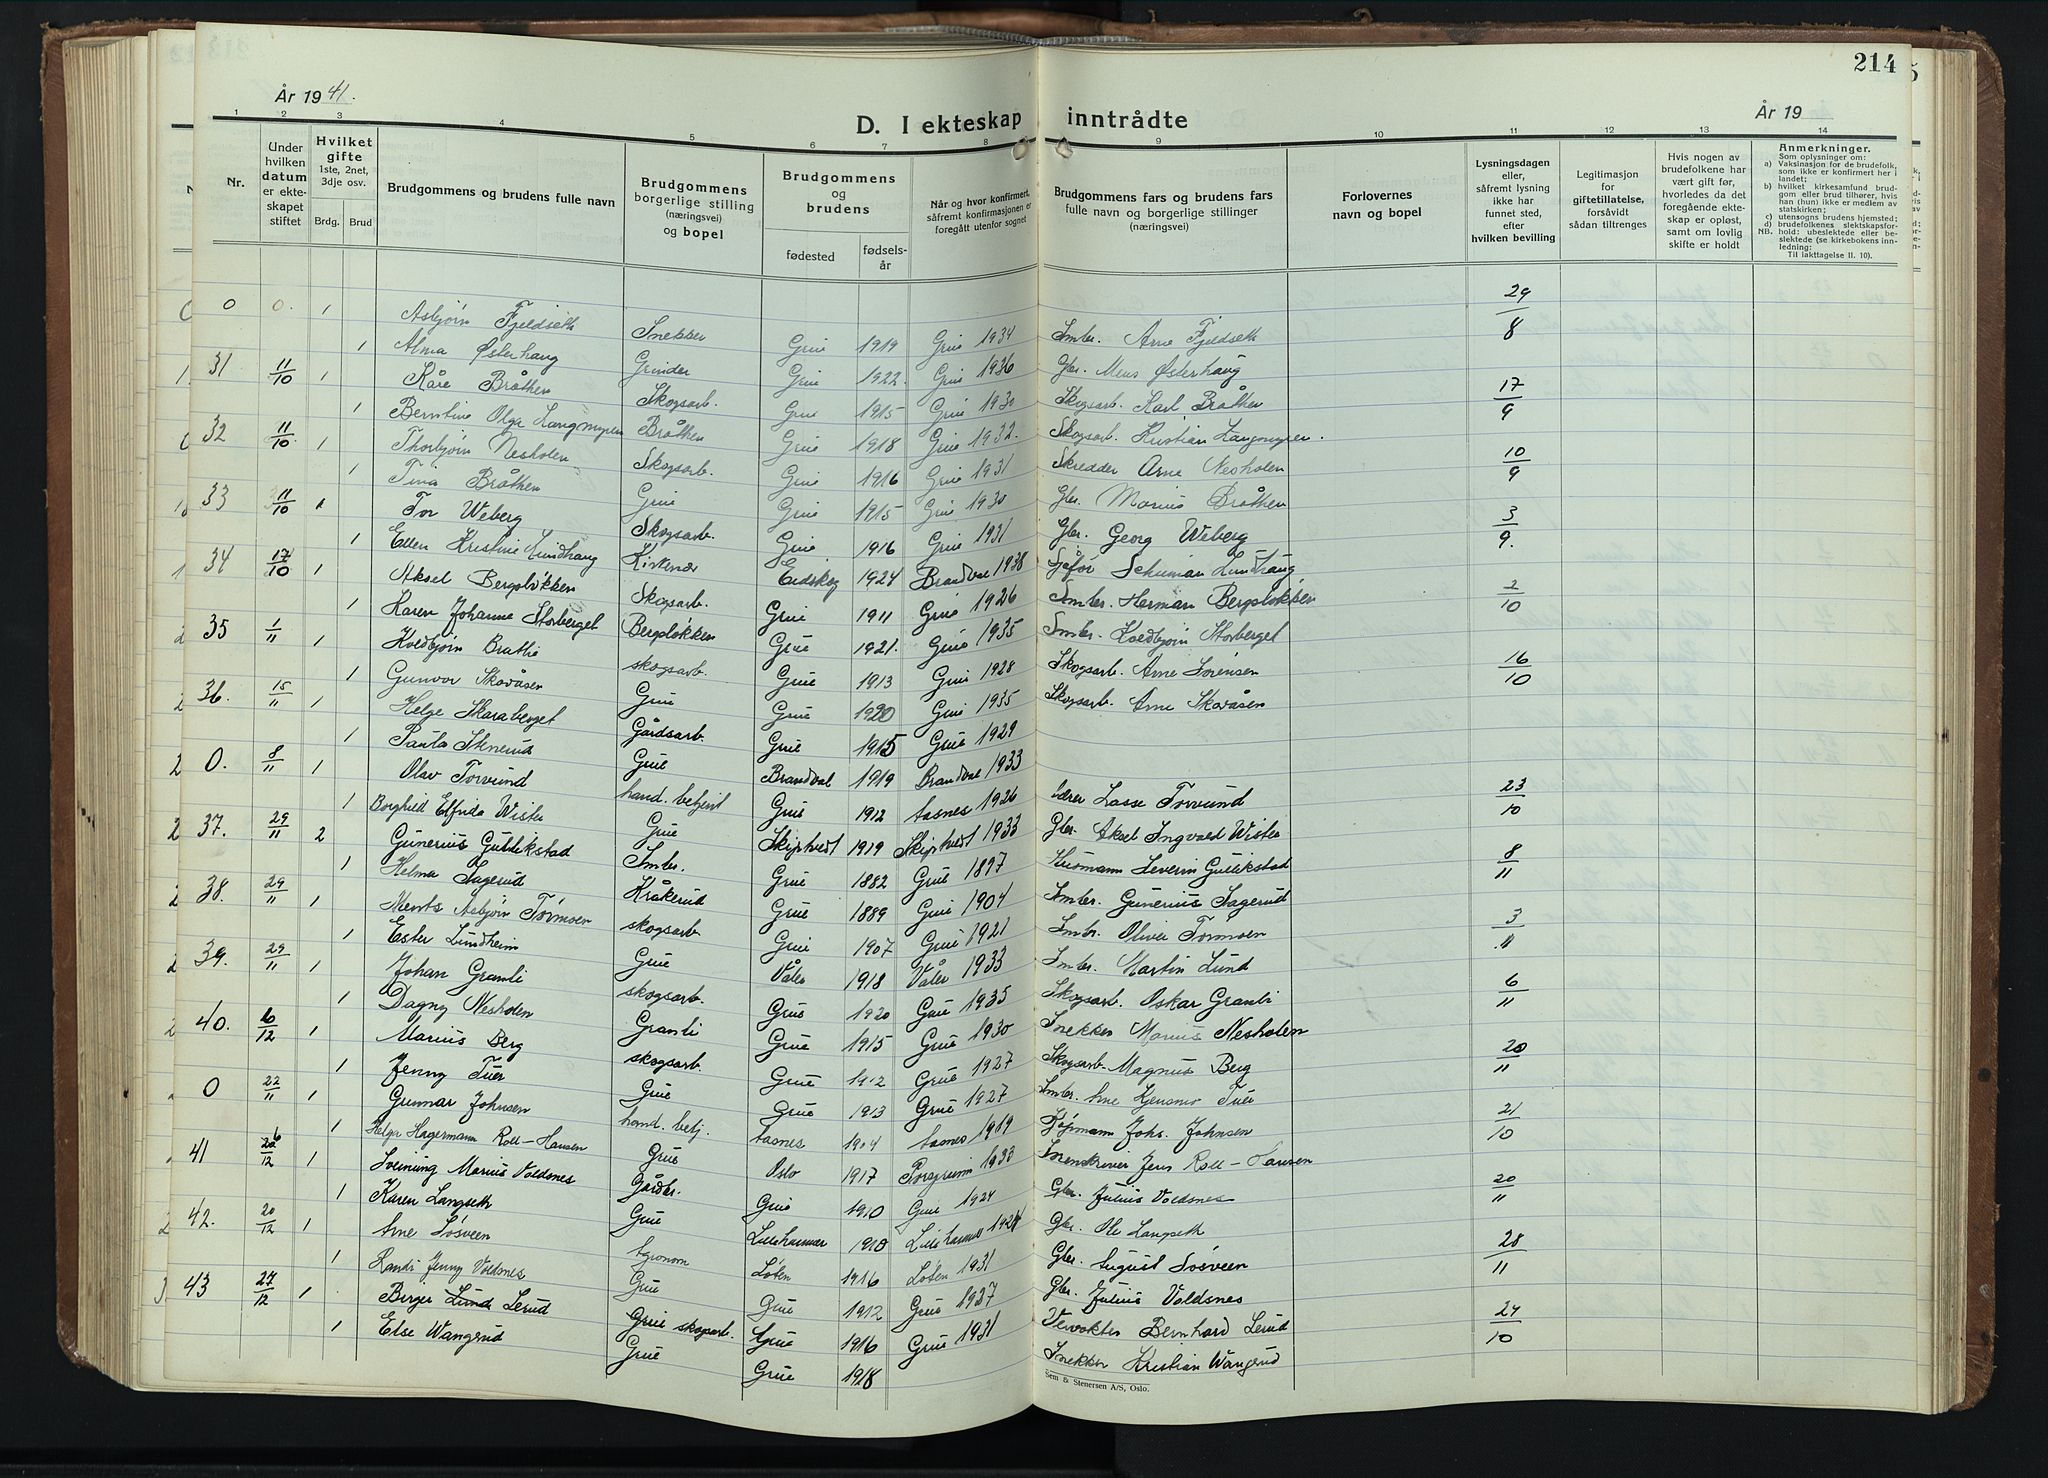 214
År 1941.
D. I ekteskap inntrådte
År 19
1 2 3 4 5 6 7 8 9 10 11 12 13 14
Nr.
Under hvilken datum er ekteskapet stiftet
Hvilket gifte 1ste, 2net, 3dje osv.
Brdg. Brud
Brudgommens og brudens fulle navn
Brudgommens borgerlige stilling (næringsvei) og bopel
Brudgommens og brudens
fødested
fødselsår
Når og hvor konfirmert, såfremt konfirmasjonen er foregått utenfor sognet
Brudgommens fars og brudens fars fulle navn og borgerlige stillinger (næringsvei)
Forlovernes navn og bopel
Lysningsdagen eller, såfremt lysning ikke har funnet sted, efter hvilken bevilling
Legitimasjon for giftetillatelse, forsåvidt sådan tiltrenges
Hvis nogen av brudefolkene har vært gift før, hvorledes da det foregående ekteskap er opløst, samt om lovlig skifte er holdt
Anmerkninger.
Som oplysninger om:
a) Vaksinasjon for de brudefolk, som ikke er konfirmert her i landet;
b) hvilket kirkesamfund brudgom eller brud tilhører, hvis han (hun) ikke er medlem av statskirken;
c) utensogns brudens hjemsted;
d) brudefolkenes slektskapsforhold: ubeslektede eller beslektede (se kirkebokens innledning:
NB. Til iakttagelse II. 10).
0 0. 1 Asbjørn Fjeldseth Snekker Grue 1919 Grue 1934 Smbr. Arne Fjeldseth 29/8
1 Alma Østerhaug Grinder Grue 1922. Grue 1936 Gbr. Mens Østerhaug
31 11/10 1 Kåre Bråthen Skogsarb. Grue 1915 Grue 1930 Skogsarb. Karl Bråthen 17/9
1 Berntine Olga Langmyren Bråthen Grue 1918 Grue 1932. Skogsarb. Kristian Langmyren.
32 11/10 1 Thorbjørn Nesholen Skogsarb. Grue 1916 Grue 1931 Skredder Arne Nesholen 10/9
1 Tina Bråthen Grue Grue 1915 Grue 1930 Gbr. Marius Bråthen
33 11/10 1 Tor Weberg Skogsarb. Grue 1916 Grue 1931 Gbr. Georg Weberg 3/9.
1 Ellen Kristine Lundhaug Kirkenær Eidskog 1924 Brandval 1938 Sjåfør Lundhaug
34 17/10 1 Aksel Bergsløkken Skogsarb. Grue 1911 Grue 1926 Smbr. Herman Bergsløkken 2/10
1 Karen Johanne Storberget Bergsløkken Grue 1921. Grue 1935 Smbr. Kolbjørn Storberget
35 1/11 1 Kolbjørn Brathe skogsarb. Grue 1913 Grue 1928 Skogsarb. Arne Sørensen 16/10
1 Gunvor Skavåsen Grue Grue 1920 Grue 1935 Skogsarb. Arne Skavåsen
36. 15/11 1 Helge Skaraberget Gårdsarb. Grue 1915 Grue 1929
1 Paula Stenerud Grue Brandval 1919 Brandval 1933
0. 8/11 1 Olav Torvund hand. betjent Grue 1912 Aasnes 1926 Lærer Lasse Torvund 23/10
1 Borghild Elfrida Wister Grue Skiptvedt 1919 Skiptvedt 1933 Gbr. Aksel Ingvald Wister
37. 29/11 2 Gunerius Gullikstad Smbr. Grue 1882 Grue 1897 Husmann Severin Gullikstad 8/11
1 Helma Sagerud Kråkerud Grue 1889 Grue 1904 Smbr. Gunerius Sagerud
38. 29/11 1 Ments Asbjørn Tormoen skogsarb Grue 1907 Grue 1921 Smbr. Oliver Tormoen 3/11
1 Ester Lundheim Grue Våler 1918 Våler 1933 Smbr. Martin Lund
39. 29/11 1 Johan Granli skogsarb. Grue 1920 Grue 1935 Skogsarb. Oskar Granli 6/11
1 Dagny Nesholen Granli Grue 1915 Grue 1930 Snekker Marius Nesholen
40. 6/12 1 Marius Berg skogsarb. Grue 1912 Grue 1927 Skogsarb. Magnus Berg 20/11
1 Jenny Tuer Grue Grue 1913 Grue 1927 Smbr. Arne Tuer
0 22/11 1 Gunnar Johnsen hand. betj. Aasnes 1904 Aasnes 1919 Kjøpmann Johs. Johnsen 21/10
1 Helga Hagermann Roll-Hansen Grue Oslo 1917 1933 Sorenskriver Jens Roll-Hansen
41 26/12 1 Sveinung Marius Voldsnes Gårdbr. Grue 1910 Grue 1924 Gbr. Julius Voldsnes 20/11
1 Karen Langseth Grue Lillehammer 1910 Lillehammer 1924 Gbr. Ole Langseth
42. 20/12 1 Arne Løsveen Agronom Løten 1916 Løten 1931 Gbr. August Løsveen 28/11
1 Randi Jenny Voldsnes Grue Grue 1912 Grue 1927 Gbr. Julius Voldsnes
43 27/12 1 Berger Lund Lerud Grue skogsarb. Grue 1916 Grue 1931 Bernhard Lerud 24/10
1 Else Wangerud Grue Grue 1918 Snekker Kristian Wangerud
Sem & Stenersen A/S, Oslo.